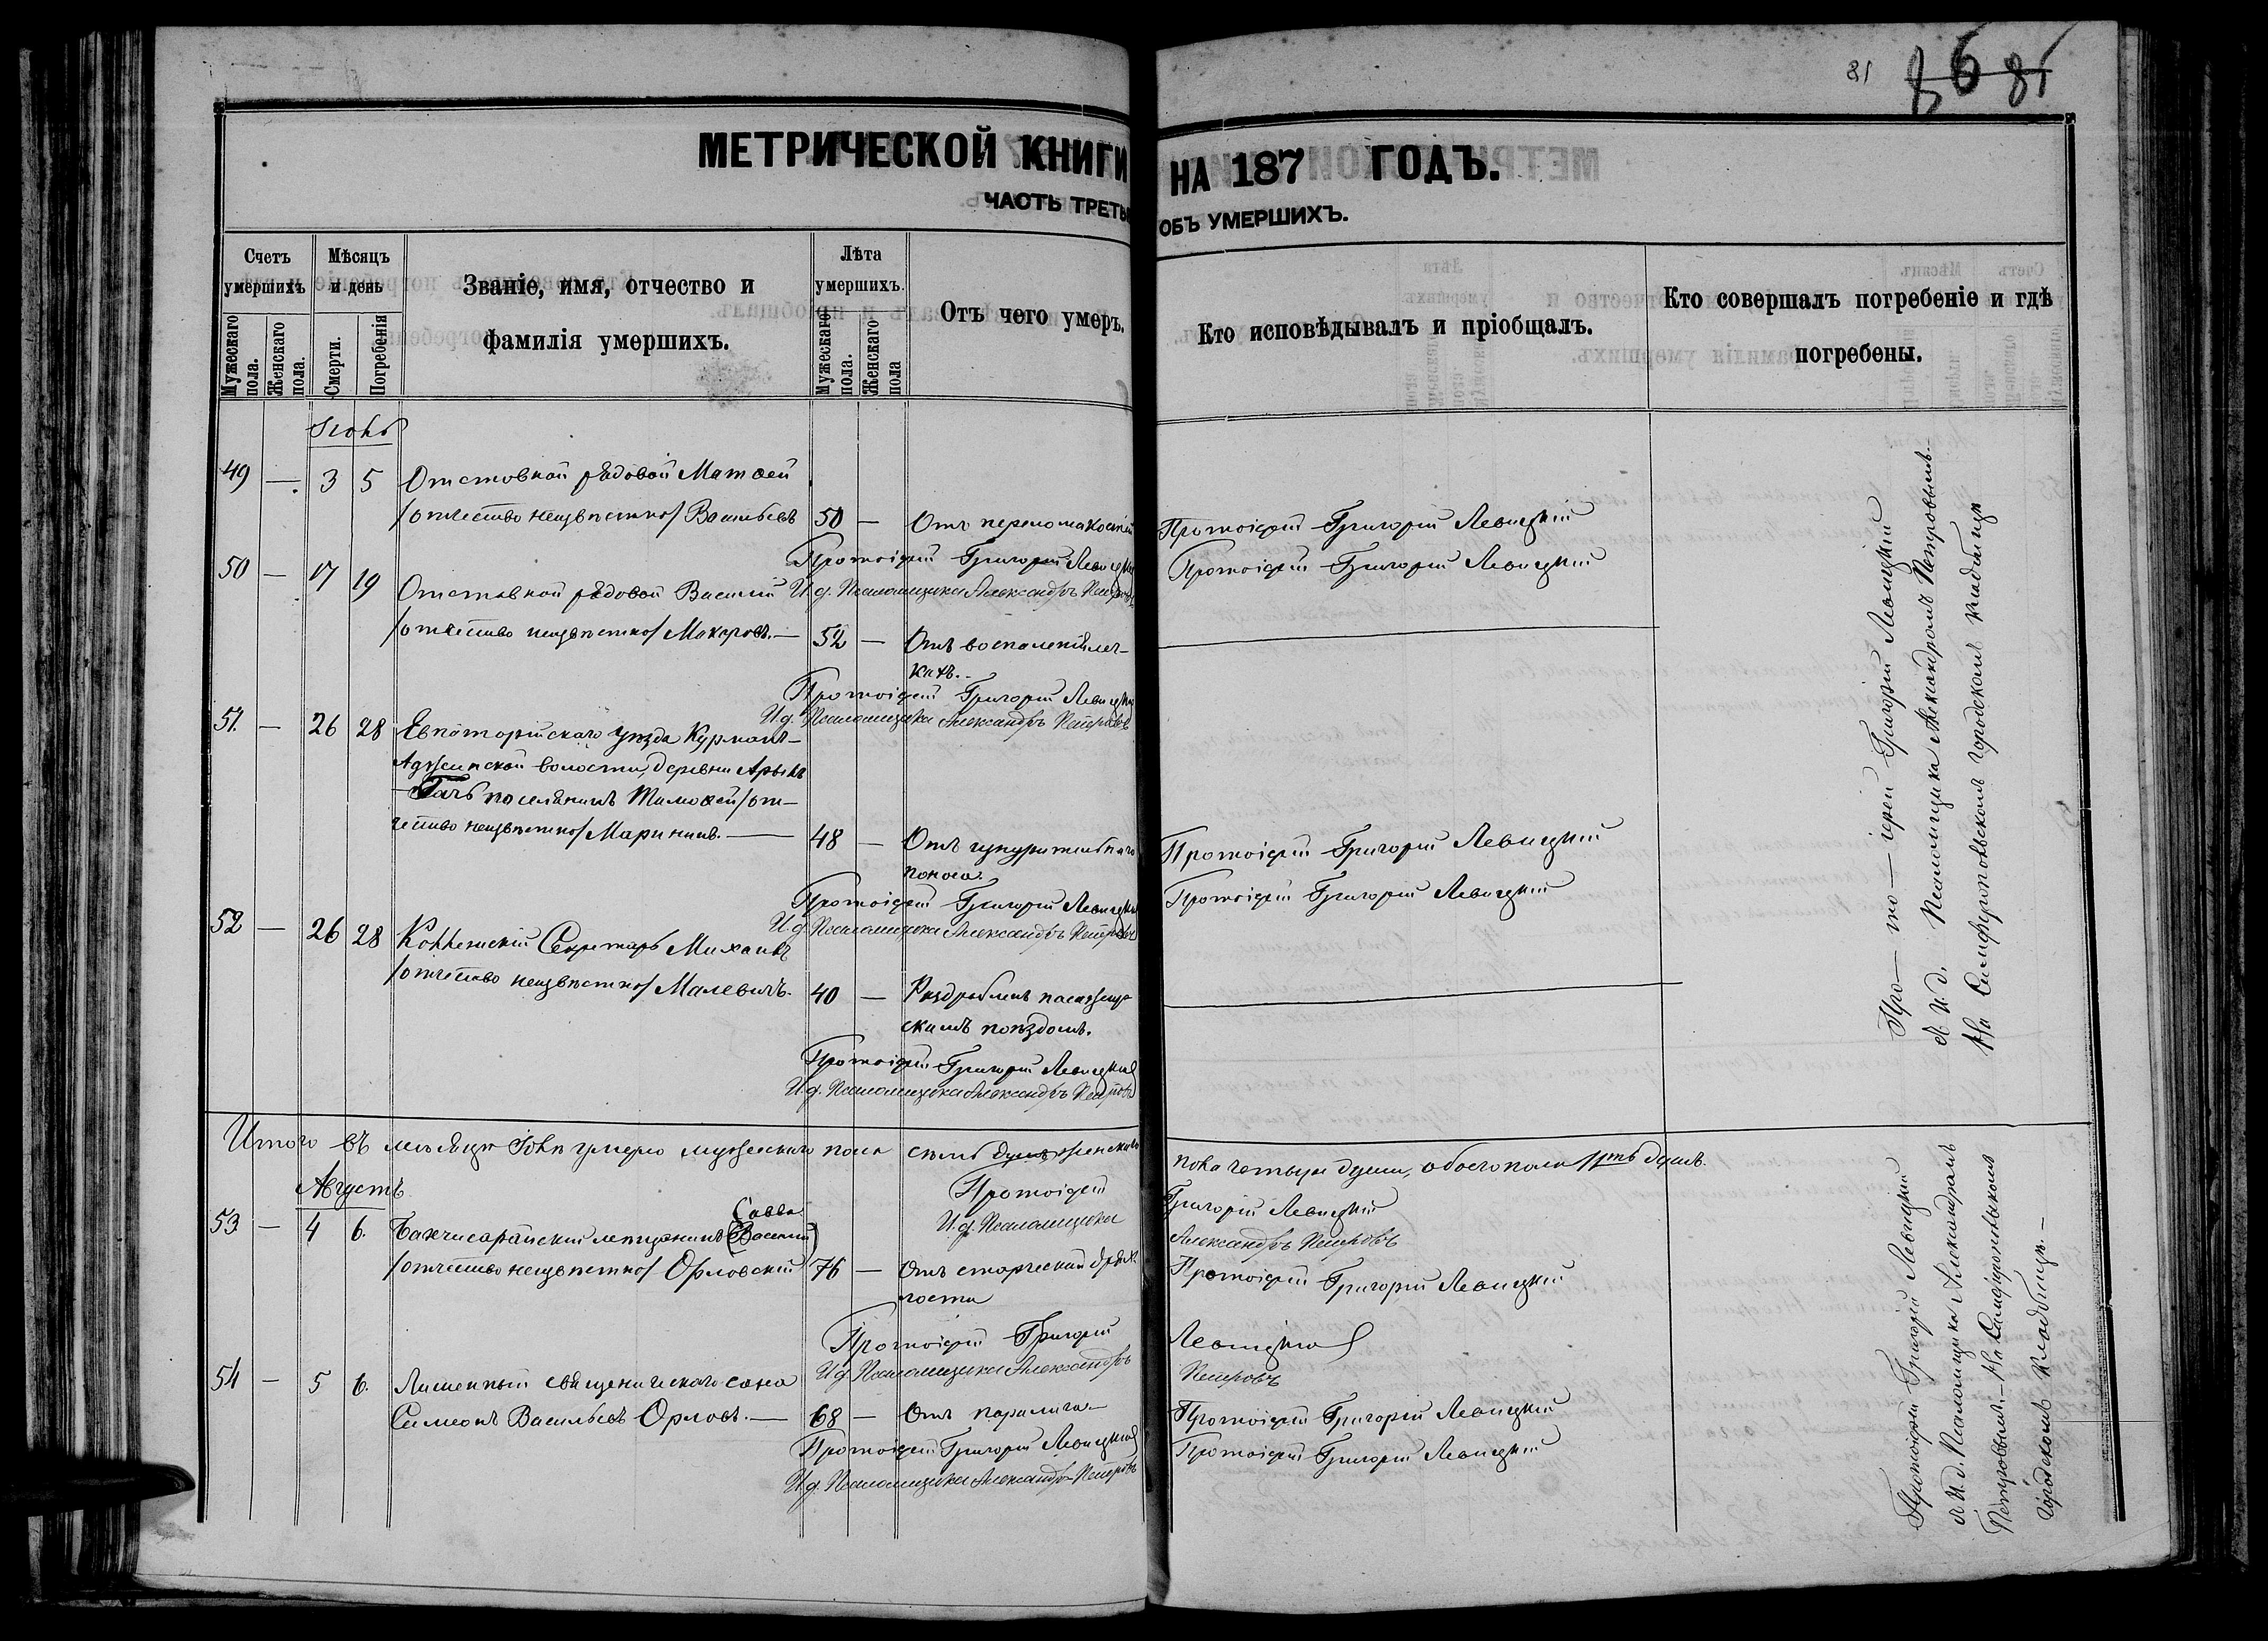 81 86 81
МЕТРИЧЕСКОЙ КНИГИ НА 187 ГОДЪ.
ЧАСТЬ ТРЕТЬ ОБЪ УМЕРШИХЪ.
Счетъ умершихъ
Мужескаго пола.
Женскаго пола.
Мѣсяцъ и день
Смерти.
Погребенія
Званіе, имя, отчество и
фамилія умершихъ.
Лѣта умершихъ.
Мужескаго пола.
Женскаго пола
Отъ чего умеръ.
Кто исповѣдывалъ и пріобщалъ.
Кто совершалъ погребеніе и гдѣ
погребены.
49 — 3 5 Отставной рядовой Матѳей
/отчество неизвѣстно/ Васильевъ 50 — Отъ перелома костей
Протоіерей Григорій Левицкій
Протоіерей Григорій Левицкій
И.д. Псаломщика Александръ Петровъ
Протоіерей Григорій Левицкій
50 — 17 19 Отставной рядовой Василій
/отчество неизвѣстно/ Макаровъ. — 52 — Отъ воспаленія лег-
кихъ.
Протоіерей Григорій Левицкій
И.д. Псаломщика Александръ Петровъ
51. — 26 28 Евпаторійскаго уѣзда Курманъ-
Аджинской волости, деревни
поселянинъ Тимоѳей /от-
чество неизвѣстно/ Марининъ. — 48 — Отъ изнурительнаго
поноса.
Протоіерей Григорій Левицкій
Протоіерей Григорій Левицкій
И.д. Псаломщика Александръ Петровъ
Протоіерей Григорій Левицкій
52 — 26 28 Коллежскій Секретарь Михаилъ
/отчество неизвѣстно/ Малевичъ. 40 — Раздробленъ пассажир-
скимъ поѣздомъ.
Протоіерей Григорій Левицкій
И.д. Псаломщика Александръ Петровъ
Про — то — іерей Григорій Левицкій
и И.д. Псаломщика Александромъ Петровымъ
На Симферопольскомъ городскомъ кладбищѣ
Итого въ мѣсяцѣ Іюлѣ умерло мужескаго пола семь душъ женскаго пола четыре души, обоего пола 11ть душъ.
Протоіерей Григорій Левицкій
И.д. Псаломщика Александръ Петровъ
Августъ
Савва
53 — 4 6. Бахчисарайскій мещанинъ (Василій)
/отчество неизвѣстно/ Орловскій 76 — Отъ старческой дрях-
лости
Протоіерей Григорій Левицкій
Протоіерей Григорій Левицкій
И.д. Псаломщика Александръ Петровъ
54 — 5 6. Лишенный священническаго сана
Симеонъ Васильевъ Орловъ. — 68 — Отъ паралича —
Протоіерей Григорій Левицкій
Протоіерей Григорій Левицкій
Протоіерей Григорій Левицкій
И.д. Псаломщика Александръ Петровъ
Протоіерей Григорій Левицкій
и И.д. Псаломщика Александромъ
Петровымъ. — На Симферопольскомъ
городскомъ кладбищѣ. —